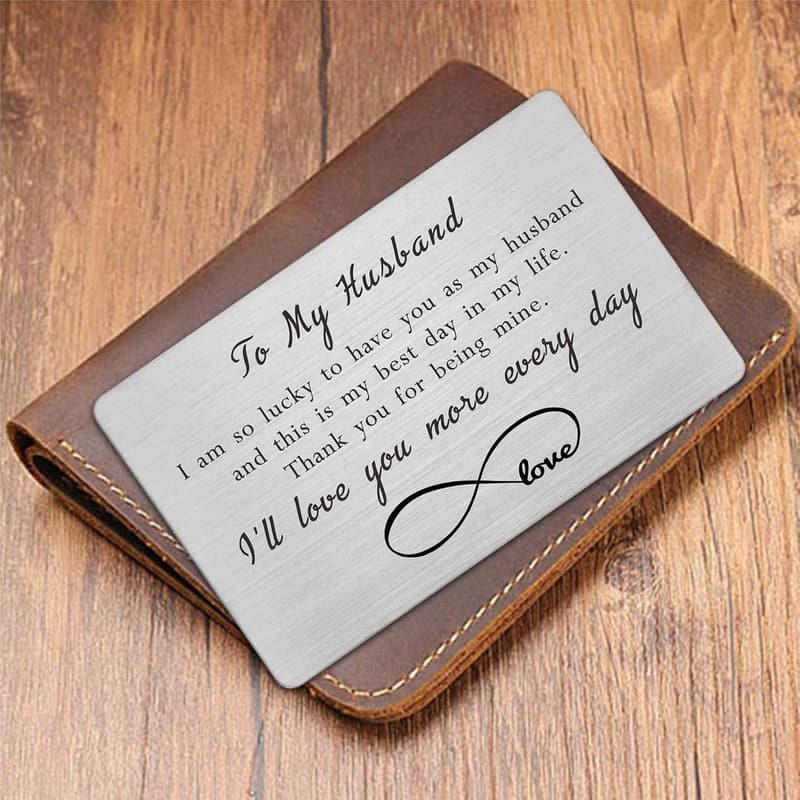 To My Husband
I am so lucky to have you as my husband
and this is my best day in my life.
Thank you for being mine.
I'll love you more every day
love